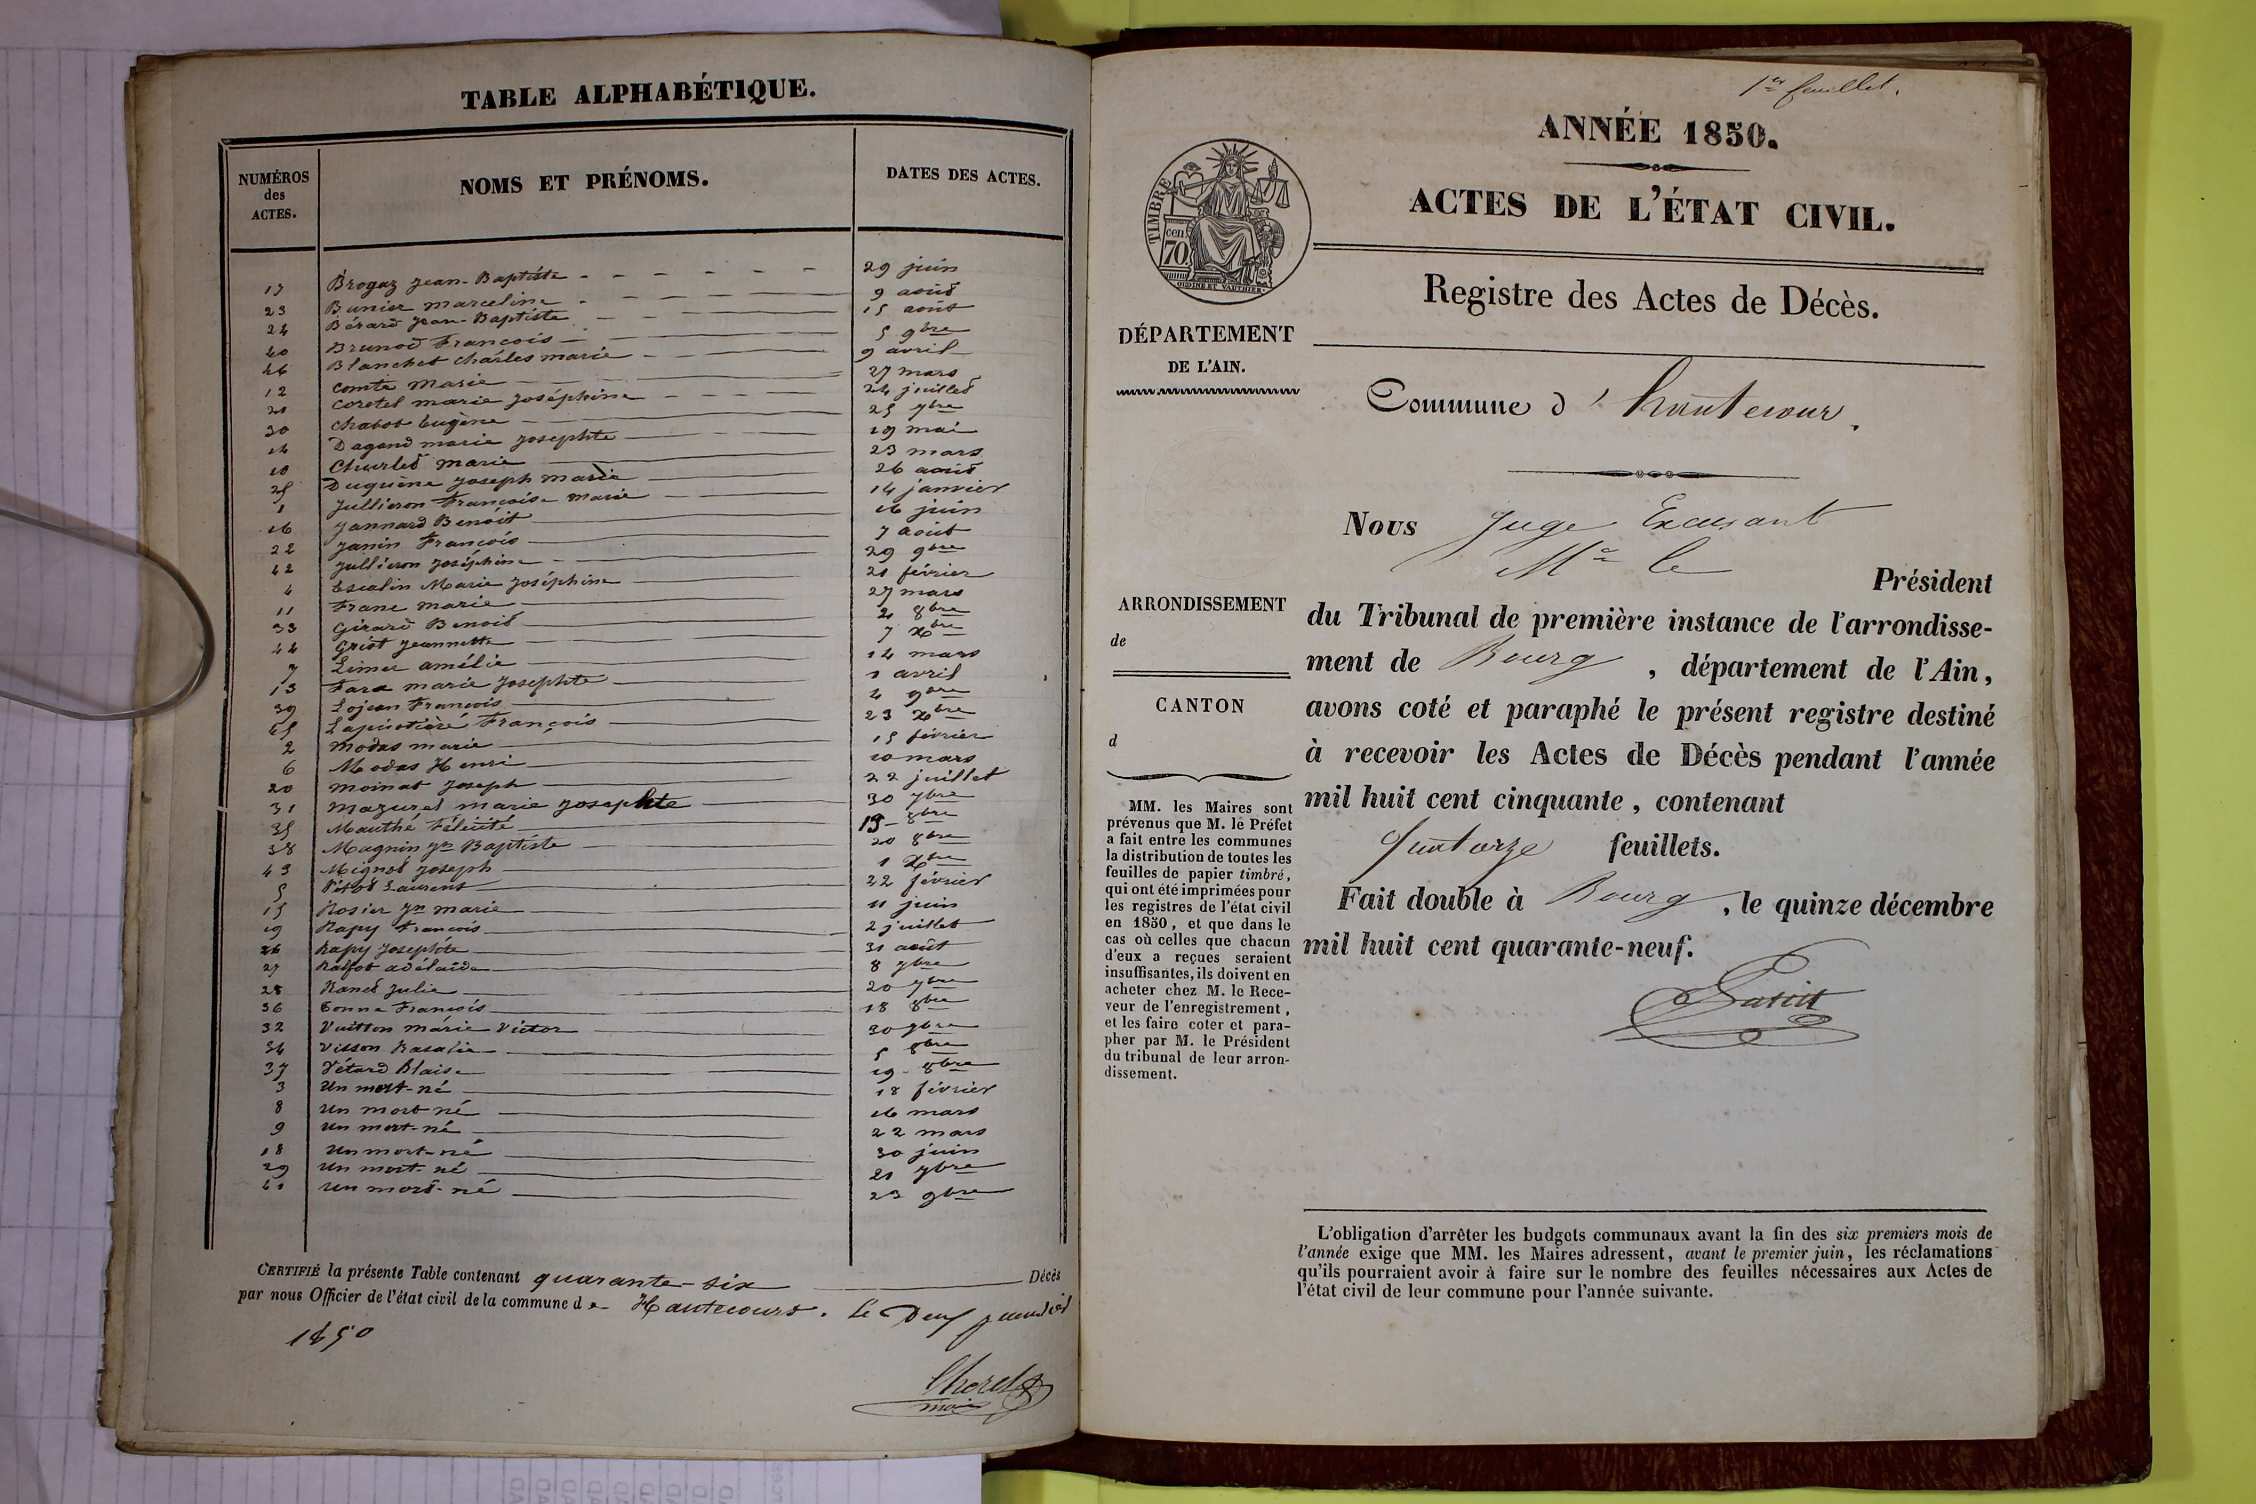 TABLE ALPHABÉTIQUE.
NUMÉROS
des
ACTES.
NOMS ET PRÉNOMS.
DATES DES ACTES.
17 Brogaz Jean-Baptiste 29 juin
23 Bunier marceline 9 août
24 Bérard Jean-Baptiste 15 août
40 Brunod François 5 9bre
46 Blanchet Charles marie 9 avril
12 Comte Marie 27 mars
21 Coretel marie joséphine 24 juillet
30 Chabot Eugène 25 7bre
14 Dagand marie josephte 19 mai
10 Churlet marie 23 mars
25 Duguène joseph marie 26 août
1 Jullieron Françoise marie 14 janvier
16 Jannard Benoit 16 juin
22 Janin François 7 août
42 Jullieron joséphine 29 9bre
4 Escalin Marie joséphine 21 février
11 Franc marie 27 mars
33 Girard Benoit 2 8bre
44 Griot jeannette 7 Xbre
7 Limer amélie 14 mars
13 Fara marie josephte 1 avril
39 Lojean François 2 9bre
45 François 23 Xbre
2 modas marie 15 février
6 Modas Henri 10 mars
20 moinat joseph 22 juillet
31 mazurel marie josephte 30 7bre
35 Manthé Félicité 19 8bre
38 Magnin Jn Baptiste 20 8bre
43 Mignot joseph 1 Xbre
5 Pétod Laurent 22 février
15 Rosier Jn marie 11 juin
19 Rapy François 2 juillet
26 Rapy josephte 31 août
27 Raffot adélaïde 8 7bre
28 Raned Julie 20 7bre
36 Tonne François 18 8bre
32 Vuitton marie Victor 30 7bre
34 Visson Rosalie 5 8bre
37 Vétard Blaise 19 8bre
3 un mort-né 18 février
8 un mort né 16 mars
9 un mort-né 22 mars
18 un mort-né 30 juin
29 un mort-né 21 7bre
41 un mort-né 23 9bre
CERTIFIÉ la présente Table contenant quarante-six Décès
par nous Officier de l'état civil de la commune d e Hautecourt. Le Deux janvier
1850
Chorel
maire
1er feuillet.
ANNÉE 1850.
ACTES DE L'ÉTAT CIVIL.
Registre des Actes de Décès.
TIMBRE
70 cen.
DÉPARTEMENT
DE L'AIN.
Commune d' hautecour.
Nous Juge Excusant
Mr le
Président
du Tribunal de première instance de l'arrondisse-
ment de Bourg, département de l'Ain,
avons coté et paraphé le présent registre destiné
à recevoir les Actes de Décès pendant l'année
mil huit cent cinquante, contenant
quatorze feuillets.
Fait double à Bourg, le quinze décembre
mil huit cent quarante-neuf.
ARRONDISSEMENT
de
CANTON
d
MM. les Maires sont
prévenus que M. le Préfet
a fait entre les communes
la distribution de toutes les
feuilles de papier timbré,
qui ont été imprimées pour
les registres de l'état civil
en 1850, et que dans le
cas où celles que chacun
d'eux a reçues seraient
insuffisantes, ils doivent en
acheter chez M. le Rece-
veur de l'enregistrement,
et les faire coter et para-
pher par M. le Président
du tribunal de leur arron-
dissement.
L'obligation d'arrêter les budgets communaux avant la fin des six premiers mois de
l'année exige que MM. les Maires adressent, avant le premier juin, les réclamations
qu'ils pourraient avoir à faire sur le nombre des feuilles nécessaires aux Actes de
l'état civil de leur commune pour l'année suivante.